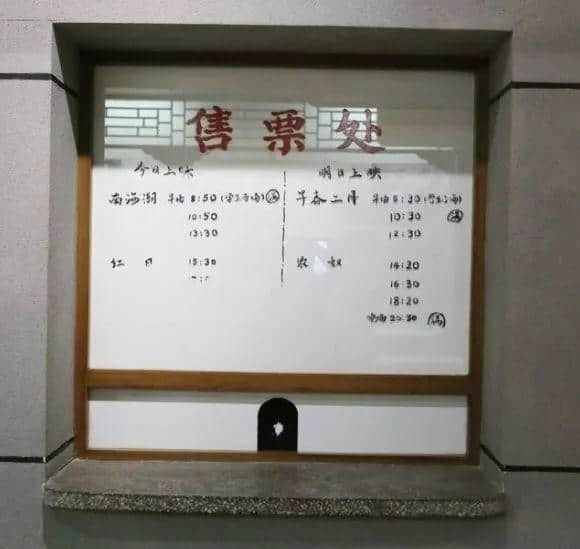 售票处
今日上映
南海潮 早场 8:50 (学生专场) 满
10:50
13:30
红日 15:30
明日上映
早春二月 早场 8:30 (学生专场)
10:30 满
12:30
农奴 14:20
16:30
18:20
20:30 满